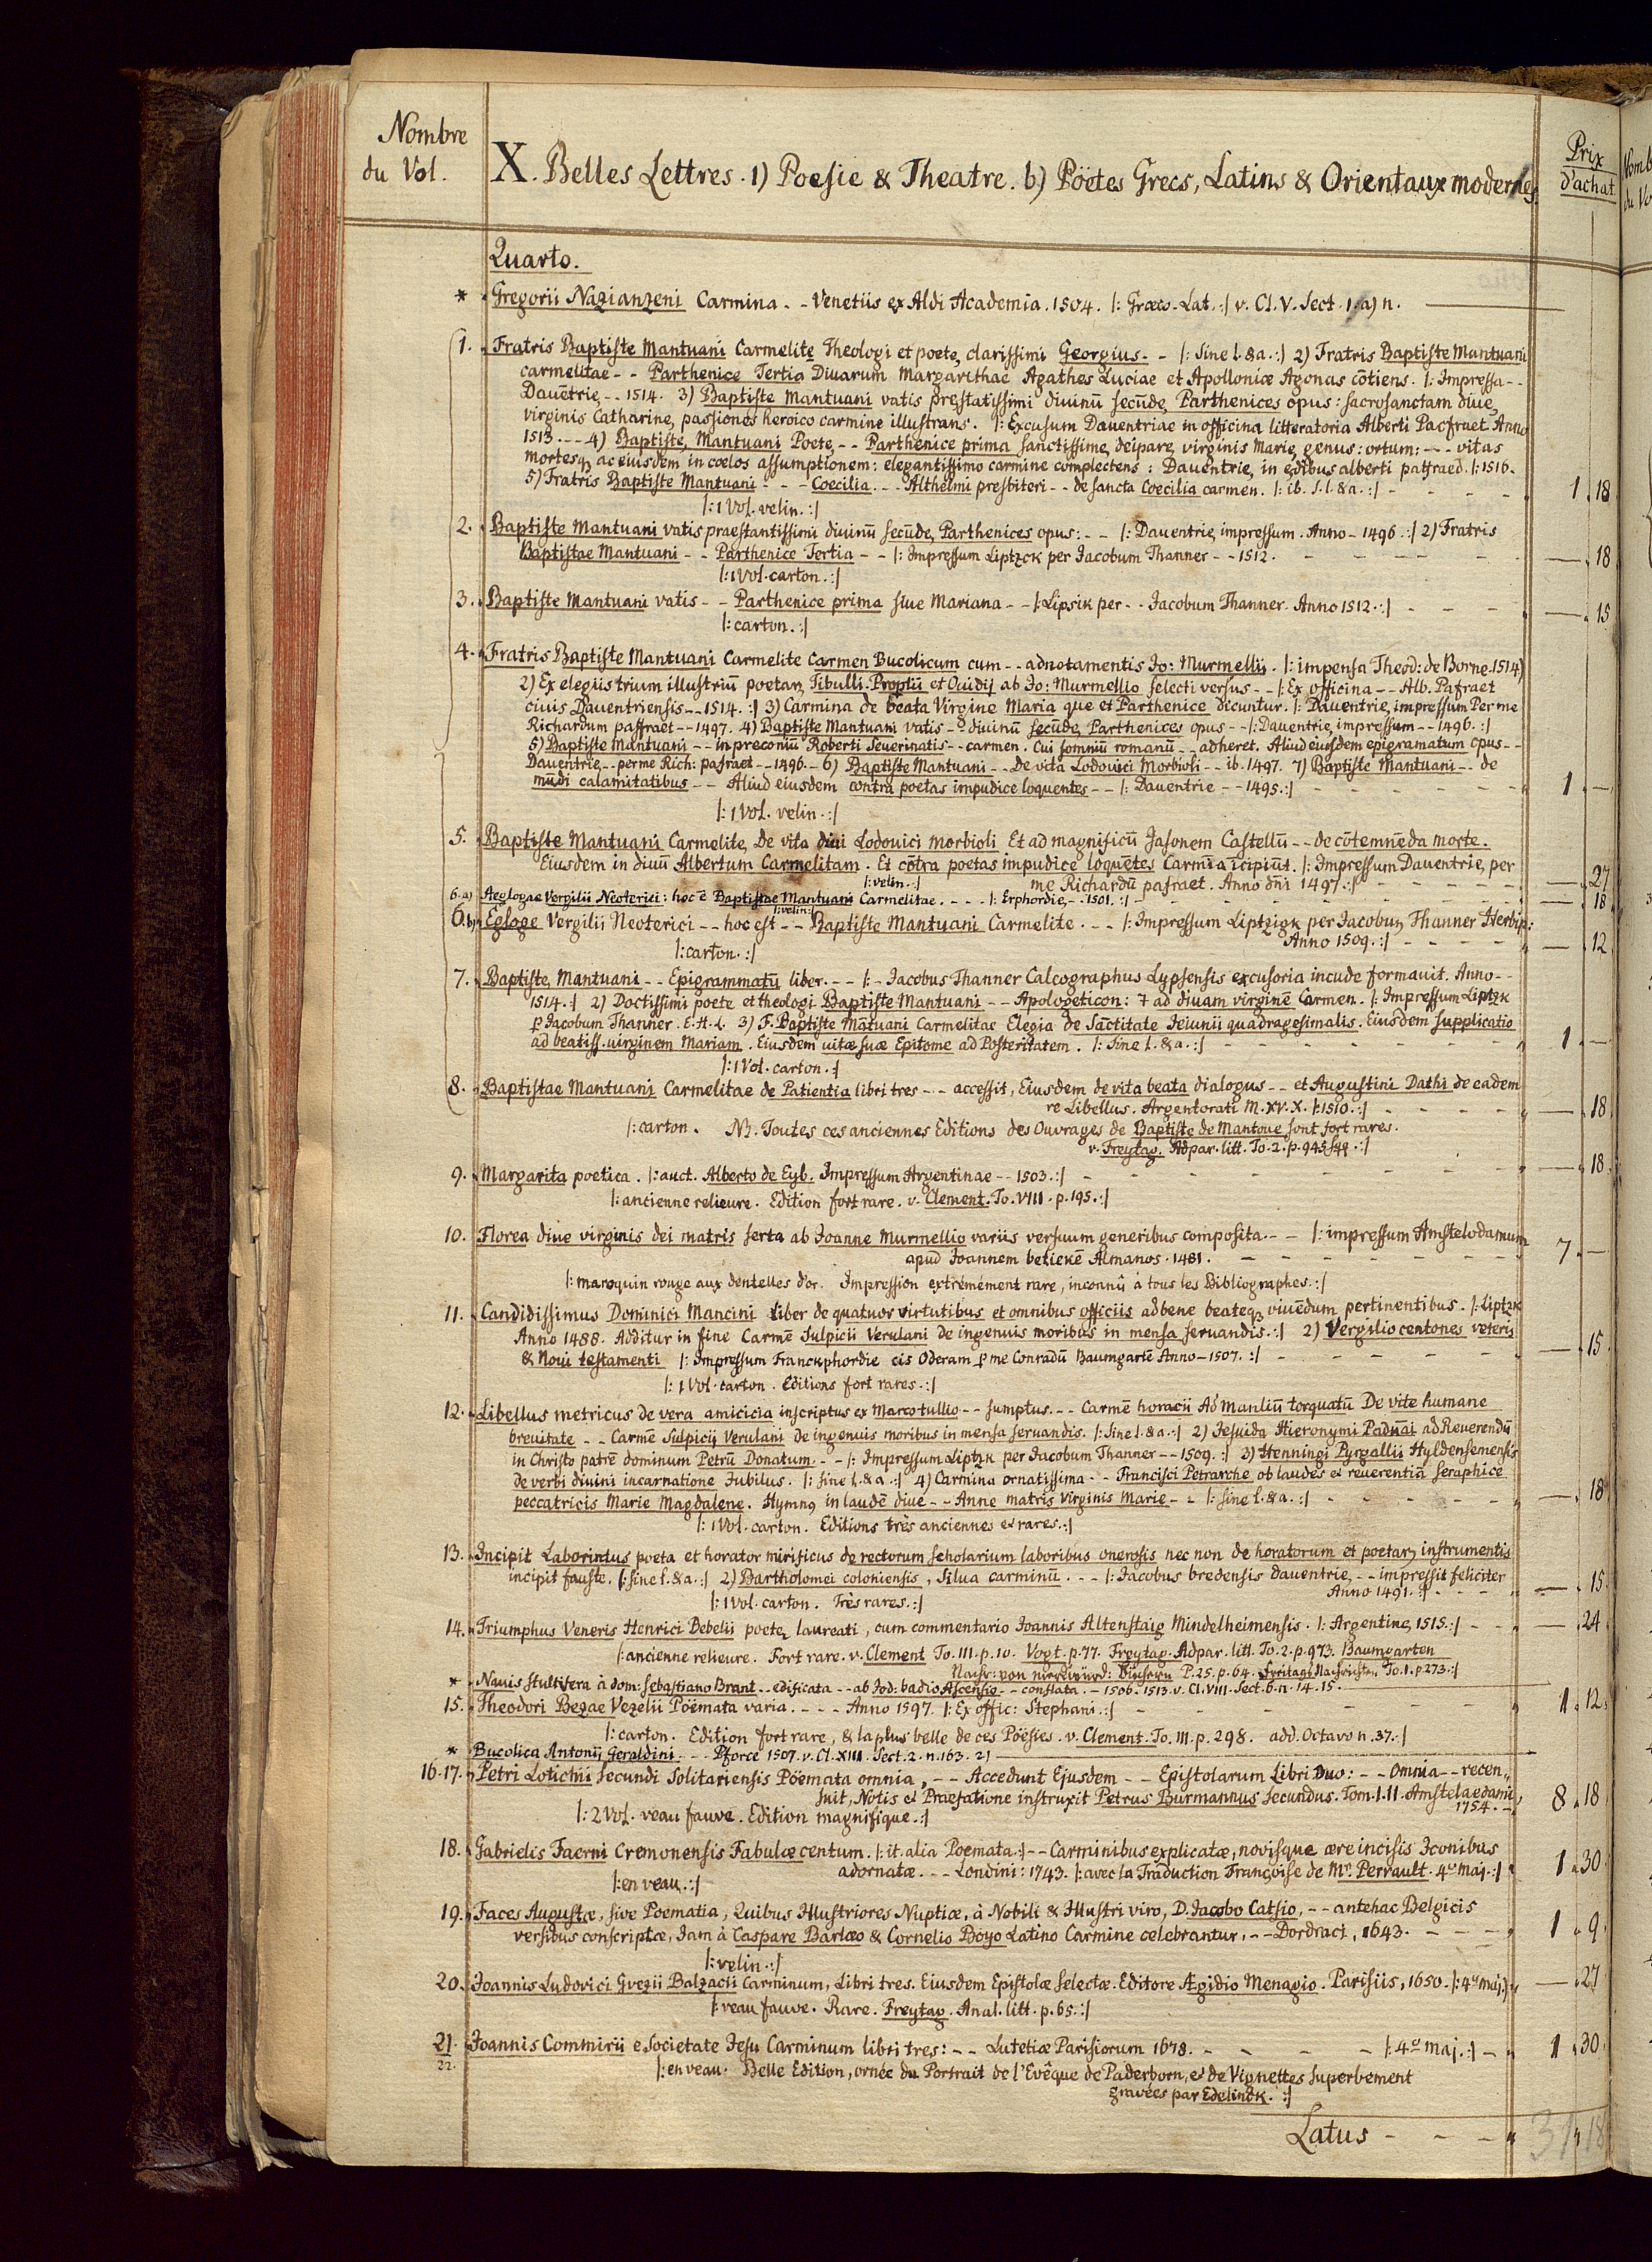 Nombre
du Vol.
X. Belles Lettres. 1) Poesie & Theatre. b) Pöetes Grecs, Latins & Orientaux modernes.
Prix
d'achat
Quarto.
* Gregorii Nazianzeni Carmina - - Venetiis ex Aldi Academia. 1504. |: Græco-Lat. :| v. Cl. V. Sect. 1. a) n.
1. Fratris Baptiste Mantuani Carmelite Theologi et poete, clarissimi Georgius - - |: Sine l. & a. :| 2) Fratris Baptiste Mantuani
carmelitae - - Parthenice Tertia Diuarum Margarethae Agathes Luciae et Apolloniæ Agonas cōtiens. |: Impressa - -
Dauētrie, - - 1514. 3) Baptiste Mantuani vatis prestatissimi diuinū secūde, Parthenices opus: sacrosanctam diue,
virginis Catharine, passiones heroico carmine illustrans. |: Excusum Dauentriae in officina litteratoria Alberti Pacfraet Anno
1513. - - - 4) Baptiste, Mantuani Poete, - - Parthenice prima sanctissime, deipare, virginis Marie, genus: ortum: - - - vitas
mortesq, ac eiusdem in cœlos assumptionem: elegantissimo carmine complectens: Dauentrie, in ędibus alberti pafraed. |: 1516.
5) Fratris Baptiste Mantuani - - - Coecilia - - - Althelmi presbiteri - - de sancta Coecilia carmen. |: ib. s. l. & a. :| - - - - 1 . 18
|: 1 Vol. velin. :|
2. Baptiste Mantuani vatis praestantissimi diuinū secūde, Parthenices opus: - - |: Dauentrie, impressum. Anno - 1496. :| 2) Fratris
Baptistae Mantuani - - Parthenice Tertia - - |: Impressum Liptzck per Jacobum Thanner - - 1512. - - - - — . 18
|: 1 Vol. carton. :|
3. Baptiste Mantuani vatis - - Parthenice prima siue Mariana - - |: Lipsik per - - Jacobum Thanner. Anno 1512. :| - - - — . 15
|: carton. :|
4. Fratris Baptiste Mantuani Carmelite Carmen Bucolicum cum - - adnotamentis Jo: Murmellii. |: impensa Theod: de Borne. 1514)
2) Ex elegiis trium illustriū poetar, Tibulli. Proptii et Ouidij ab Jo: Murmellio selecti versus - - |: Ex officina - - Alb. Pafraet
ciuis Dauentriensis - - 1514. :| 3) Carmina de beata Virgine Maria que et Parthenice dicuntur. |: Dauentrie, impressum Per me
Richardum paffraet - - 1497. 4) Baptiste Mantuani vatis - - diuinū secūde, Parthenices opus - - |: Dauentrie, impressum - - 1496. :|
5) Baptiste Mantuani - - in preconiū Roberti Seuerinatis - - carmen. Cui somniū romanū - - adheret. Aliud eiusdem epigramatum opus - -
Dauentrie, - - per me Rich: pafraet - - 1496. - 6) Baptiste Mantuani - - De vita Lodouici Morbioli - - ib. 1497. 7) Baptiste Mantuani - - de
mūdi calamitatibus - - Aliud eiusdem contra poetas impudice loquentes - - |: Dauentrie - - 1495. :| - - - - 1 . —
|: 1 Vol. velin. :|
5. Baptiste Mantuani Carmelite, De vita diui Lodouici morbioli Et ad magnificū Jasonem Castellū - - de cōtemnēda morte.
Eiusdem in diuū Albertum Carmelitam. Et cōtra poetas impudice loquētes Carmia icipiūt. |: Impressum Dauentrie, per
|: velin. :| me Richardū pafraet. Anno dn̄i 1497. :| - - - — . 27
6. a) Aeglogae Vergilii Neoterici: hoc ē Baptistae Mantuani Carmelitae. - - - |: Erphordie, - - 1501. :| - - - — . 18
|: velin. :|
6. b) Egloge Vergilii Neoterici - - hoc est - - Baptiste Mantuani Carmelite. - - |: Impressum Liptzigk per Jacobum Thanner Herbip:
|: carton. :| Anno 1509. :| - - - - — . 12
7. Baptiste, Mantuani - - Epigrammatū liber. - - - |: - Jacobus Thanner Calcographus Lypsensis excusoria incude formauit. Anno - -
1514. :| 2) Doctissimi poete et theologi Baptiste Mantuani - - Apologeticon: 7 ad diuam virginē Carmen. |: Impressum Liptzk
ꝑ Jacobum Thanner. E. H. L. 3) F. Baptiste Mātuani Carmelitae Elegia de Sāctitate Jeiunii quadragesimalis. Eiusdem supplicatio
ad beatiss. uirginem Mariam. Eiusdem uitæ suæ Epitome ad Posteritatem. |: Sine l. & a. :| - - - - 1 . —
|: 1 Vol. carton. :|
8. Baptistae Mantuani Carmelitae de Patientia libri tres - - - accessit, Eiusdem de vita beata dialogus - - et Augustini Dathi de eadem
re Libellus. Argentorati M. XV. X. |: 1510. :| - - - - — . 18
|: carton. NB. Toutes ces anciennes Editions des Ouvrages de Baptiste de Mantoue sont fort rares.
v. Freytag. Adpar. litt. To. 2. p. 945 sqq. :|
9. Margarita poetica. |: auct. Alberto de Eyb. Impressum Argentinae - - 1503. :| - - - - — . 18
|: ancienne relieure. Edition fort rare. v. Clement. To. VIII. p. 195. :|
10. Florea diue virginis dei matris serta ab Joanne Murmellio variis versuum generibus composita - - |: impressum Amstelodamum
apud Joannem betiekē Almanos. 1481. - - - - 7 . —
|: maroquin rouge aux dentelles d'or. Impression extrémément rare, inconnû à tous les Bibliographes. :|
11. Candidissimus Dominici Mancini liber de quatuor virtutibus et omnibus officiis ad bene beateq viuēdum pertinentibus. |: Liptzk
Anno 1488. Additur in fine Carmē Sulpicii Verulani de ingenuis moribus in mensa seruandis. :| 2) Vergilio centones veteris
& Noui testamenti |: Impressum Franckphordie cis Oderam ꝑ me Conradū Baumgartē Anno - 1507. :| - - - - — . 15
|: 1 Vol. carton. Editions fort rares. :|
12. Libellus metricus de vera amicicia inscriptus ex Marcotullio - - sumptus. - - Carmē horacii Ad Manliū torquatū De vite humane
breuitate - - Carmē Sulpicij Verulani de ingenuis moribus in mensa seruandis. |: Sine l. & a. :| 2) Jesuida Hieronymi Padūai ad Reuerendū
in Christo patrē dominum Petrū Donatum - - |: Impressum Liptzk per Jacobum Thanner - - 1509. :| 3) Henningi Pyrgallii Hyldensemensis
de verbi diuini incarnatione Jubilus. |: sine l. & a. :| 4) Carmina ornatissima - - Francisci Petrarche ob laudes et reuerentiā seraphice
peccatricis Marie Magdalene. Hymn9 in laudē diue - - Anne matris virginis Marie - - |: sine l. & a. :| - - - - — . 18
|: 1 Vol. carton. Editions très anciennes et rares. :|
13. Incipit Laborintus poeta et horator mirificus de rectorum scholarium laboribus onerosis nec non de horatorum et poetar, instrumentis
incipit fauste. |: sine l. & a. :| 2) Bartholomei coloniensis, Silua carminū. - - - |: Jacobus bredensis dauentrie, - - impressit feliciter
Anno 1491. :| - - - — . 15
|: 1 Vol. carton. Très rares. :|
14. Triumphus Veneris Henrici Bebelii poete, laureati, cum commentario Joannis Altenstaig Mindelheimensis. |: Argentine, 1515. :| - - — . 24
|: ancienne relieure. Fort rare. v. Clement To. III. p. 10. Vogt. p. 77. Freytag. Adpar. litt. To. 2. p. 973. Baumgarten
Nachr: von merckwürd: Büchern P. 25. p. 64. Freitags Nachrichten To. 1. p. 273. :|
* Nauis stultifera à dom: Sebastiano Brant - - edificata - - ab Jod: badio Ascensio - - conflata. - 1506. 1513. v. Cl. VIII. Sect. 6. n. 14. 15.
15. Theodori Bezae Vezelii Pöemata varia. - - - - Anno 1597. |: Ex offic: Stephani. :| - - - - 1 . 12
|: carton. Edition fort rare, & la plus belle de ces Pöésies. v. Clement. To. III. p. 298. add. Octavo n. 37. :|
* Bucolica Antonij Geraldini - - - Pforce 1507. v. Cl. XIII. Sect. 2. n. 163. 2)
16-17. Petri Lotichii Secundi Solitariensis Pöemata omnia, - - Accedunt Ejusdem - - Epistolarum Libri Duo: - - Omnia - - recen„
suit, Notis et Præfatione instruxit Petrus Burmannus Secundus. Tom. I. II. Amstelaedami, 8 . 18
1754. -
|: 2 Vol. veau fauve. Edition magnifique. :|
18. Gabrielis Faerni Cremonensis Fabulæ centum. |: it. alia Poemata. :| - - Carminibus explicatæ, novisque ære incisis Iconibus
adornatæ. - - Londini: 1743. |: avec la Traduction Françoise de Mr. Perrault. 4to maj. :| 1 . 30
|: en veau. :|
19. Faces Augustæ, sive Poematia, Quibus Illustriores Nuptiæ, à Nobili & Illustri viro, D. Jacobo Catsio, - - antehac Belgicis
versibus conscriptæ, Jam à Caspare Barlæo & Cornelio Boyo Latino Carmine celebrantur. - - Dordraci, 1643. - - - 1 . 9
|: velin. :|
20. Joannis Ludovici Guezii Balzacii Carminum, Libri tres. Eiusdem Epistolæ selectæ. Editore Ægidio Menagio. Parisiis, 1650. |: 4to maj. :| — . 27
|: veau fauve. Rare. Freytag. Anal. litt. p. 65. :|
21. Joannis Commirii e Societate Jesu Carminum libri tres: - - Lutetiæ Parisiorum 1678. - - - - |: 4to maj. :| - 1 . 30
22. |: en veau. Belle Edition, ornée du Portrait de l'Evêque de Paderborn, et de Vignettes superbement
gravées par Edelinck. :|
Latus - - - 31 . 18